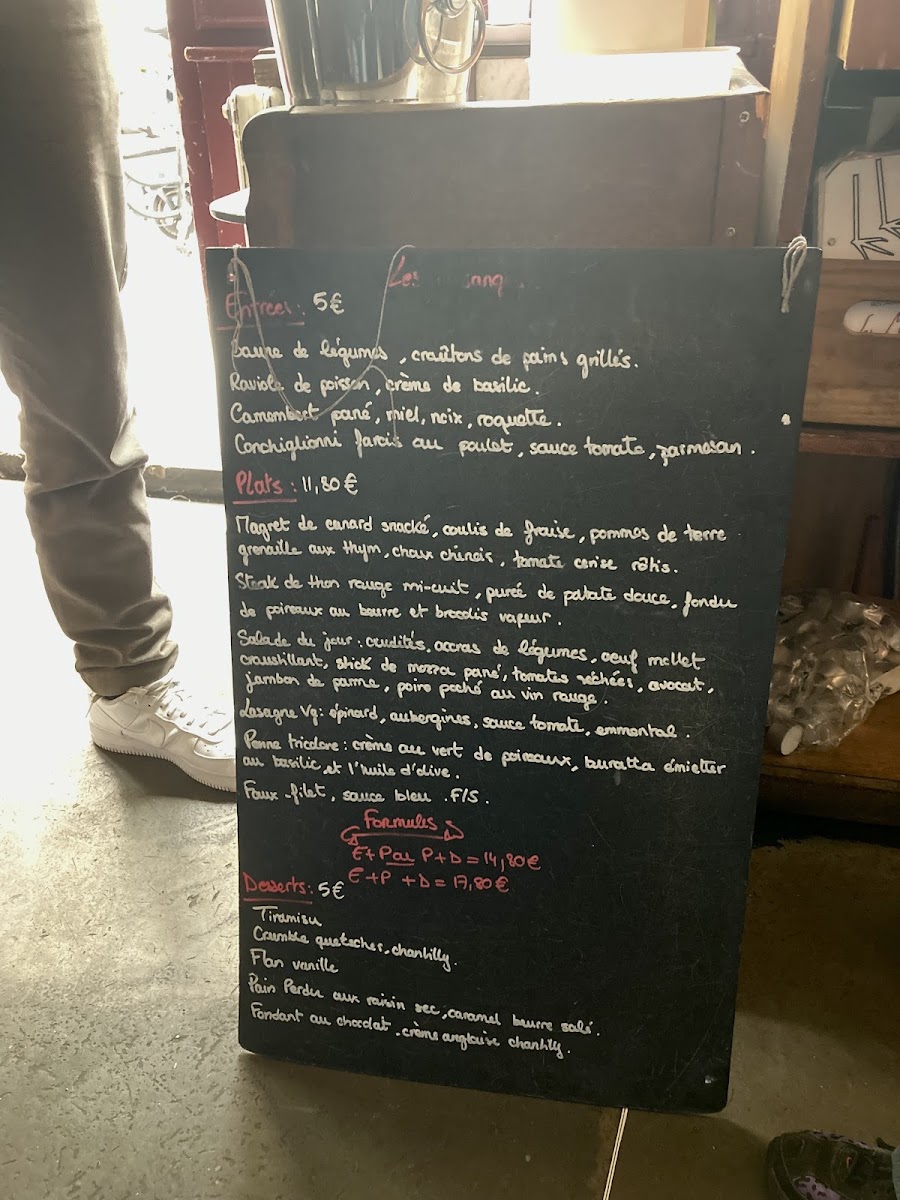 Les
Entrées : 5€
de légumes, craûtons de pains grillés.
Raviole de poisson, crème de basilic.
Camembert pané, miel, noix, roquette.
Conchiglionni farcis au poulet, sauce tomate, parmesan.
Plats : 11,80€
Magret de canard snacké, coulis de fraise, pommes de terre
grenaille aux thym, choux chinois, tomate cerise rôtis.
Steak de thon rouge mi-cuit, purée de patate douce, fondu
de poireaux au beurre et brocolis vapeur.
Salade du jour : crudités, accras de légumes, oeuf mollet
croustillant, stick de mozza pané, tomates séchées, avocat,
jambon de parme, poire poché au vin rouge.
Lasagne Vg : épinard, aubergines, sauce tomate, emmental.
Penne tricolore : crème au vert de poireaux, buratta émietter
au basilic et l'huile d'olive.
Faux-filet, sauce bleu. F/S.
Formules
E+P ou P+D = 14,80€
E+P +D = 17,80€
Desserts : 5€
Tiramisu
Crumble quetsches, chantilly.
Flan vanille
Pain Perdu aux raisin sec, caramel beurre salé.
Fondant au chocolat, crème anglaise chantilly.